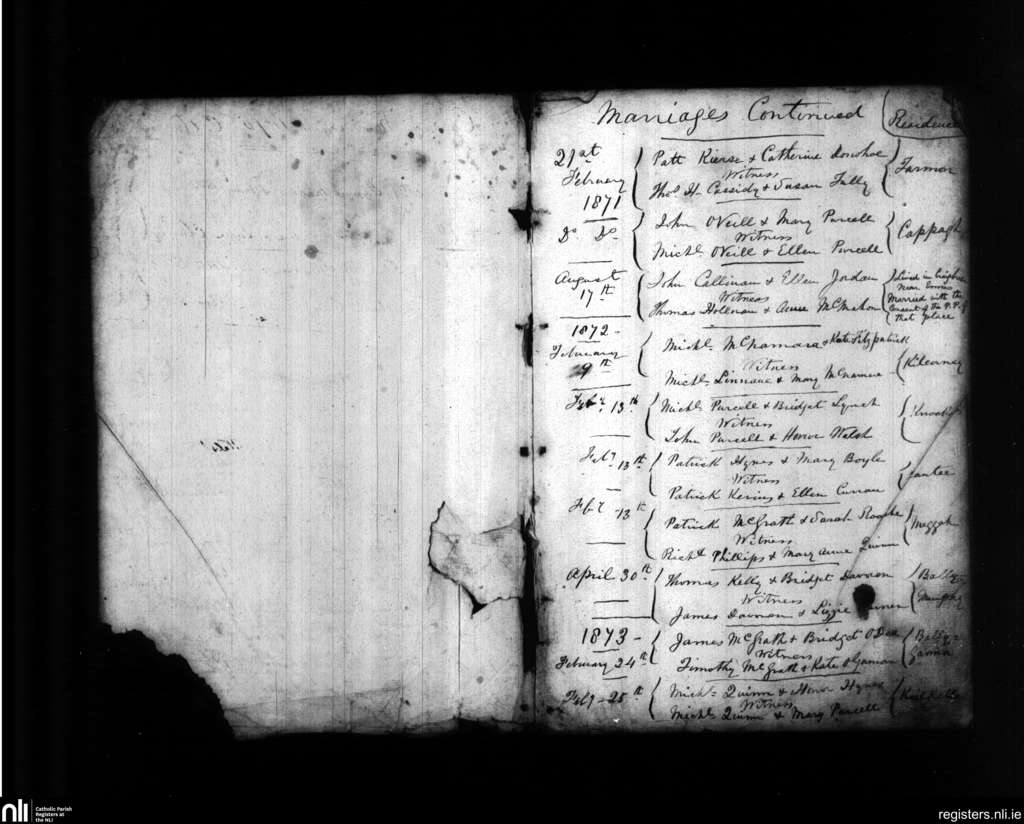 Marriages Continued
Residence
21st February 1871
Patt Kierse & Catherine Donohoe
Witness
Thos H. Cassidy & Susan Tully
Farmor
Do Do
John O'Neill & Mary Purcell
Witness
Michl O'Neill & Ellen Purcell
Cappagh
August 17th
John Callinan & Ellen Jordan
Witness
Thomas Hollnan & Anne McMahon
Lived in
Near Ennis
Married with the
Consent of the P.P. of
that place
1872 -
February 9th
Michl McNamara & Kate Fitzpatrick
Witness
Michl Linnane & Mary McNamara
Kilcorney
Feby 13th
Michl Purcell & Bridget Lynch
Witness
John Purcell & Honor Walsh
Feby 13th
Patrick Hynes & Mary Boyle
Witness
Patrick Kerins & Ellen Curran
Feby 13th
Patrick McGrath & Sarah Rourke
Witness
Richd Phillips & Mary Anne Quinn
April 30th
Thomas Kelly & Bridget Davoren
Witness
James Davoren & Lizzie
Bally
1873 -
February 24th
James McGrath & Bridget O'Dea
Witness
Timothy McGrath & Kate O'Gorman
Bally
Feby - 25th
Michl Quinn & Honor Hynes
Witness
Michl Quinn & Mary Purcell
nli
Catholic Parish
Registers at
the NLI
registers.nli.ie